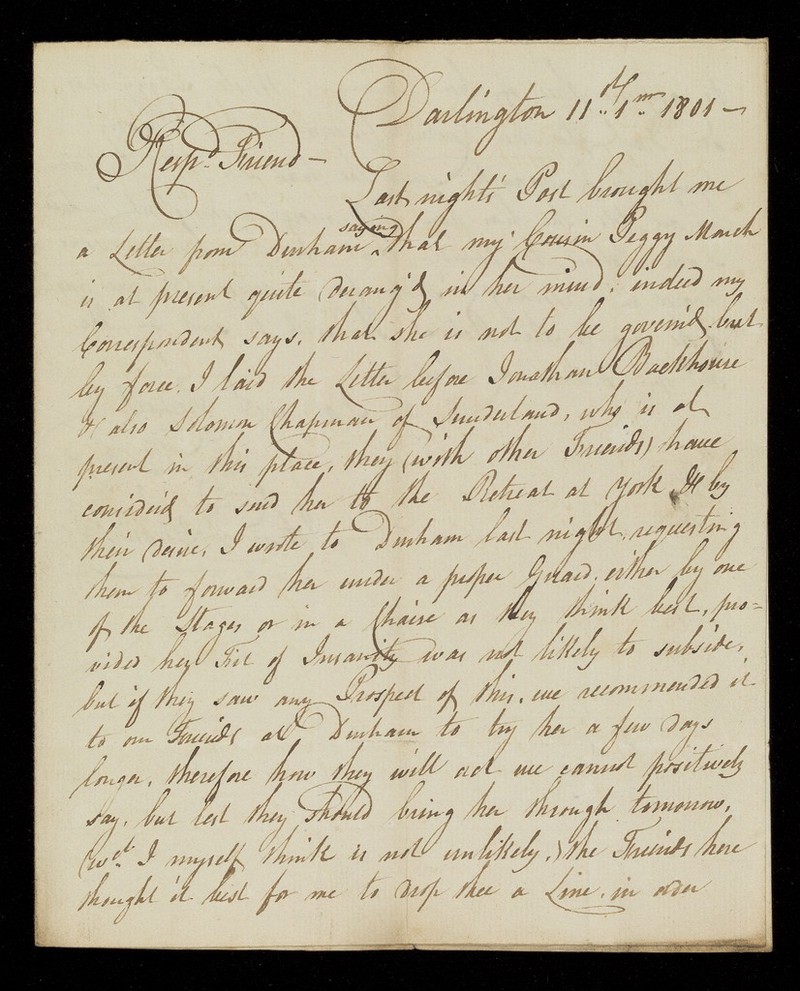 Darlington 11th. 1m. 1801 —
Respd. Friend —
Last night's Post brought me
a Letter from Durham saying that my Cousin Peggy March
is at present quite derang'd in her mind; indeed my
Correspondent says, that she is not to be govern'd but
by force. I laid the Letter before Jonathan Backhouse
& also Solomon Chapman of Sunderland, who is at
present in this place, they (with other Friends) have
consider'd to send her to the Retreat at York & by
their desire, I wrote to Durham last night, requesting
them to forward her under a proper Guard, either by one
of the Stages or in a Chaise as they think best, pro=
vided her Fit of Insanity was not likely to subside,
but if they saw any Prospect of this, we recommended it
to our Friends at Durham to try her a few days
longer, therefore how they will act we cannot positively
say, but lest they should bring her through tomorrow,
(wch. I myself think is not unlikely,) the Friends here
thought it best for me to drop thee a Line, in order